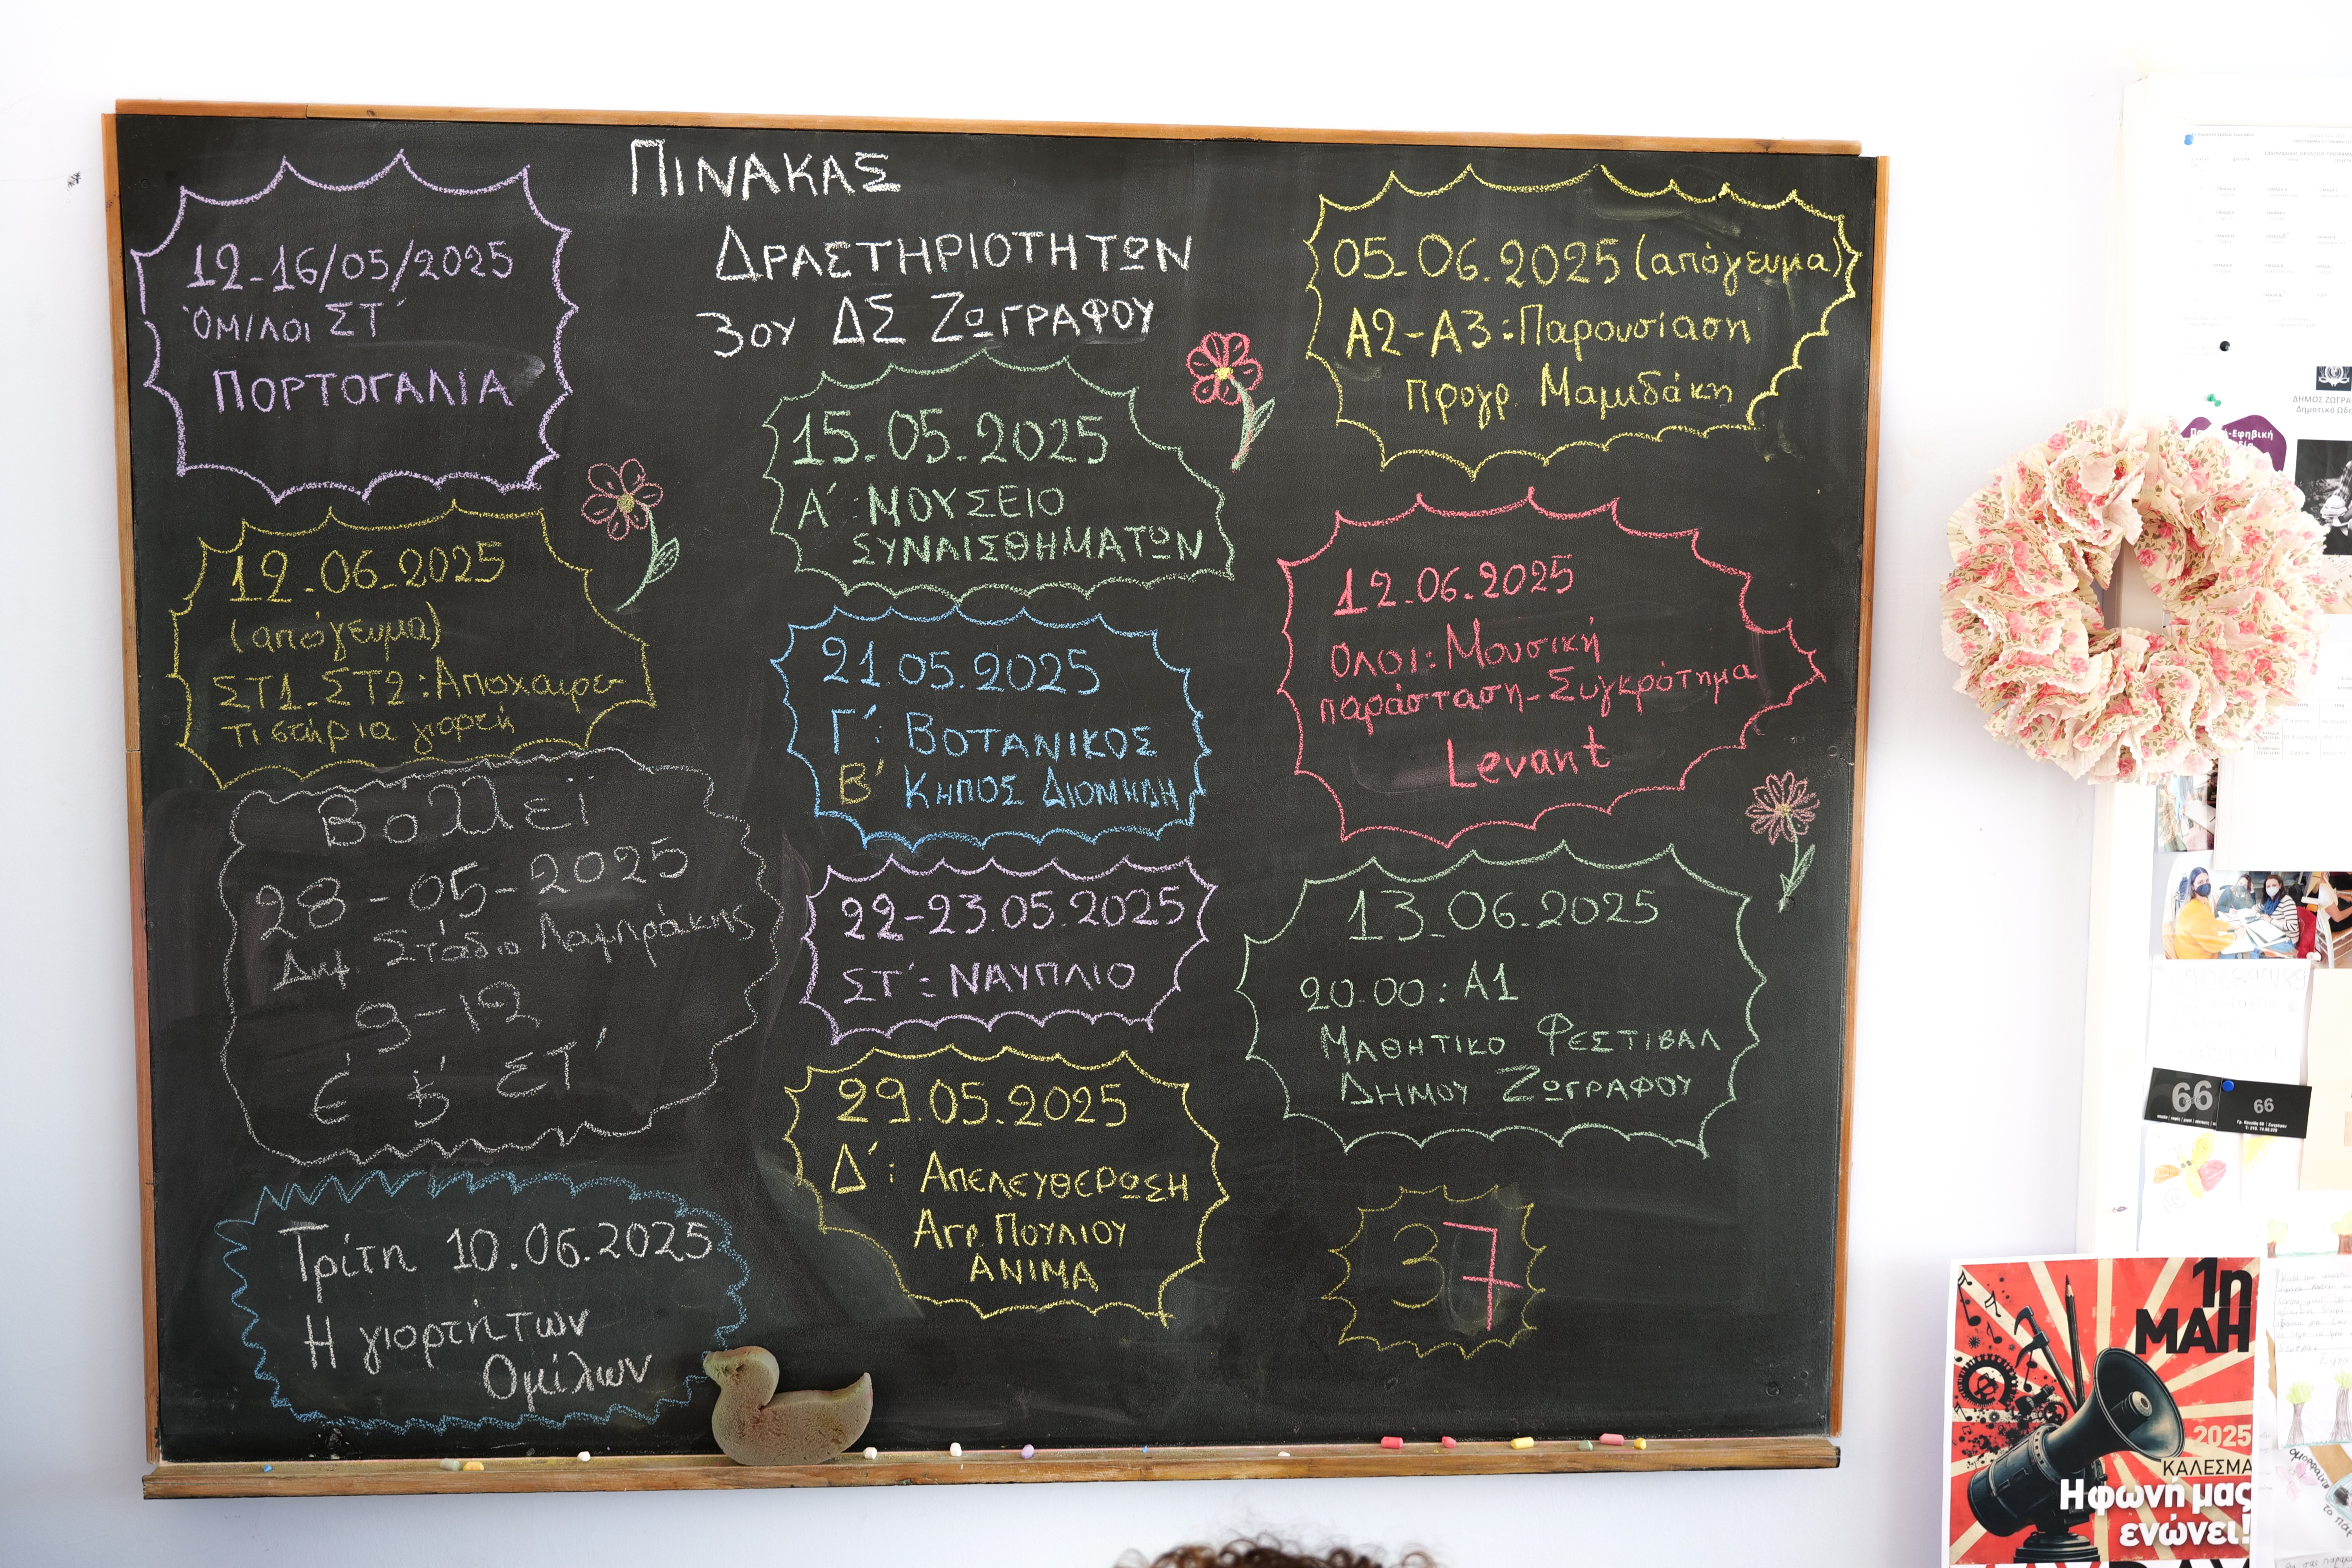 ΠΙΝΑΚΑΣ
ΔΡΑΣΤΗΡΙΟΤΗΤΩΝ
3ου ΔΣ ΖΩΓΡΑΦΟΥ
12-16/05/2025
ΌΜΙΛΟΙ ΣΤ΄
ΠΟΡΤΟΓΑΛΙΑ
12.06.2025
(απόγευμα)
ΣΤ1-ΣΤ2: Αποχαιρε-
τιστήρια γιορτή
Βόλλεϊ
28-05-2025
Δημ. Στάδιο Λαμπράκης
9-12
Ε΄ & ΣΤ΄
Τρίτη 10.06.2025
Η γιορτή των
Ομίλων
15.05.2025
Α΄: ΜΟΥΣΕΙΟ
ΣΥΝΑΙΣΘΗΜΑΤΩΝ
21.05.2025
Γ΄: ΒΟΤΑΝΙΚΟΣ
Β΄ ΚΗΠΟΣ ΔΙΟΜΗΔΗ
22-23.05.2025
ΣΤ΄: ΝΑΥΠΛΙΟ
29.05.2025
Δ΄: ΑΠΕΛΕΥΘΕΡΩΣΗ
ΑΓΡ. ΠΟΥΛΙΟΥ
ΑΝΙΜΑ
05.06.2025 (απόγευμα)
Α2-Α3: Παρουσίαση
προγρ. Μαμιδάκη
12.06.2025
ΟΛΟΙ: Μουσική
παράσταση-Συγκρότημα
Levant
13.06.2025
20.00: Α1
ΜΑΘΗΤΙΚΟ ΦΕΣΤΙΒΑΛ
ΔΗΜΟΥ ΖΩΓΡΑΦΟΥ
37
66
66
1η
ΜΑΗ
2025
ΚΑΛΕΣΜΑ
Η φωνή μας
ενώνει!